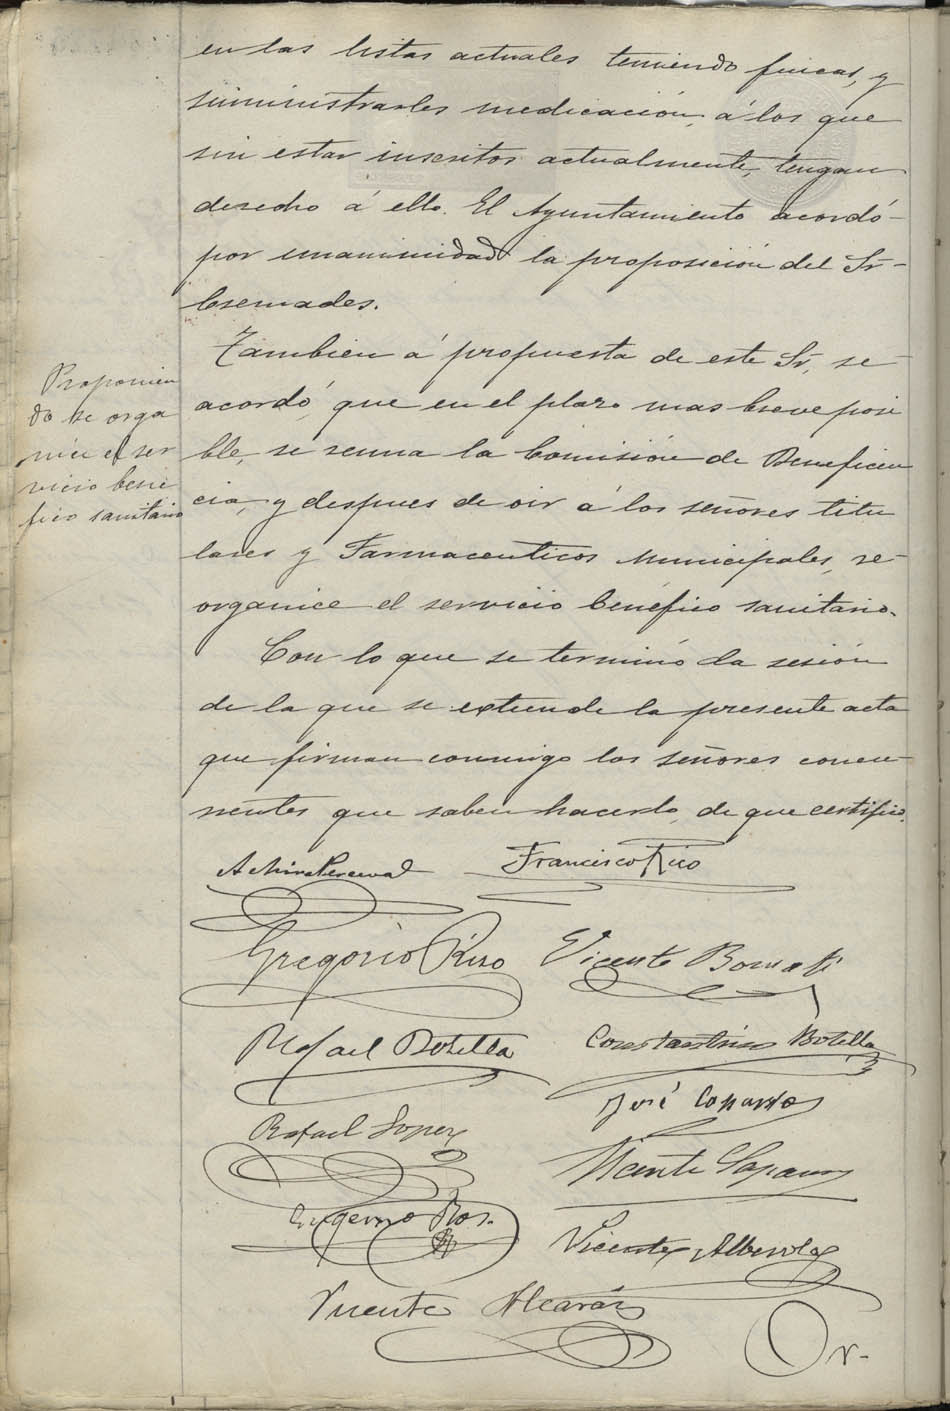 en las listas actuales teniendo fincas, y
suministrarles medicación, á los que
sin estar inscritos actualmente, tengan
derecho á ello. El Ayuntamiento acordó
por unanimidad la proposición del Sr
Esemades.
Tambien á propuesta de este Sr, se
acordó, que en el plazo mas breve posi
ble, se reuna la Comisión de Beneficen
cia, y despues de oir á los señores titu
lares y Farmaceuticos Municipales, re-
organice el servicio benéfico sanitario.
Con lo que se terminó la sesión
de la que se extiende la presente acta
que firman conmigo los señores concu-
rrentes que saben hacerlo, de que certifico.
Proponien
do se orga
nice el ser
vicio bene
fico sanitario
A Mira Perceval
Francisco Rico
Gregorio Rizo
Vicente Bernabé
Rafael Botella
Constantino Botella
José
Rafael Lopez
Vicente
Eugenio Ros.
Vicente Alberola
Vicente Alcaráz